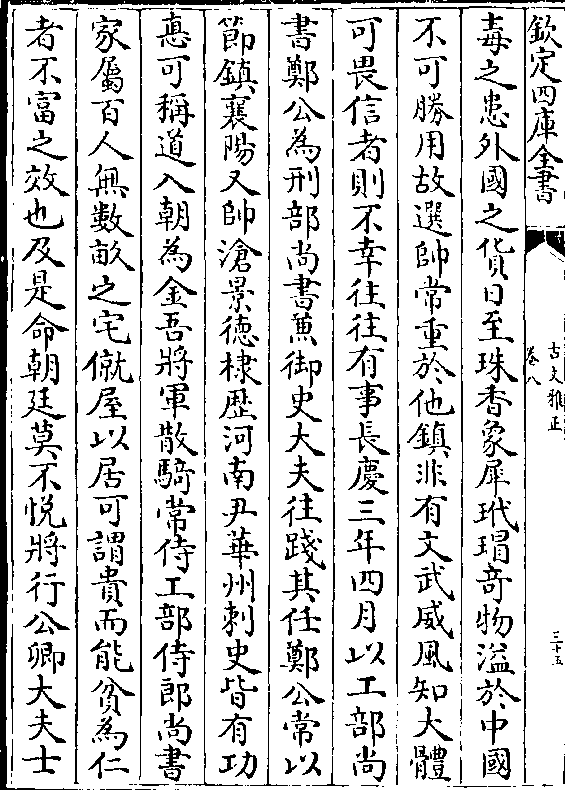 欽定四庫全書
古文雅正
卷八
三十五
毒之患外國之貨日至珠香象犀玳瑁竒物溢於中國
不可勝用故選帥常重於他鎮非有文武威風知大體
可畏信者則不幸往往有事長慶三年四月以工部尚
書鄭公為刑部尚書兼御史大夫往踐其任鄭公常以
節鎮襄陽又帥滄景德棣歴河南尹華州刺史皆有功
悳可稱道入朝為金吾將軍散騎常侍工部侍郎尚書
家屬百人無數畝之宅僦屋以居可謂貴而能貧為仁
者不富之效也及是命朝廷莫不悦將行公卿大夫士